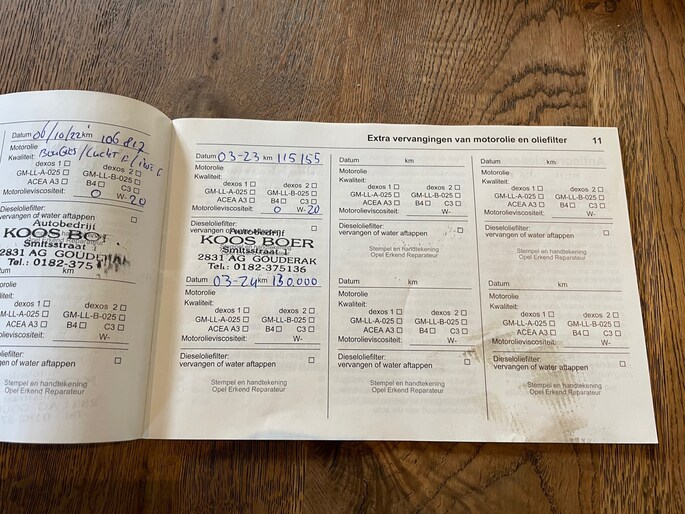 Datum 06/10/22 km 106 817
Motorolie
Kwaliteit: Bougies /
dexos 1 ☐ dexos 2 ☐
GM-LL-A-025 ☐ GM-LL-B-025 ☐
ACEA A3 ☐ B4 ☐ C3 ☐
Motorolieviscositeit: 0 W- 20
Dieseloliefilter:
vervangen of water aftappen ☐
Autobedrijf
KOOS BOER
Smitsstraat 1
2831 AG GOUDERAK
Tel.: 0182-375
tum km
dexos 1 ☐ dexos 2 ☐
GM-LL-A-025 ☐ GM-LL-B-025 ☐
ACEA A3 ☐ B4 ☐ C3 ☐
Motorolieviscositeit: W-
Dieseloliefilter:
vervangen of water aftappen ☐
Stempel en handtekening
Opel Erkend Reparateur
Extra vervangingen van motorolie en oliefilter 11
Datum 03-23 km 115155
Motorolie
Kwaliteit:
dexos 1 ☐ dexos 2 ☐
GM-LL-A-025 ☐ GM-LL-B-025 ☐
ACEA A3 ☐ B4 ☐ C3 ☐
Motorolieviscositeit: 0 W- 20
Dieseloliefilter:
vervangen of water aftappen ☐
Autobedrijf
KOOS BOER
Smitsstraat 1
2831 AG GOUDERAK
Tel.: 0182-375136
Datum 03-24 km 130.000
Motorolie
Kwaliteit:
dexos 1 ☐ dexos 2 ☐
GM-LL-A-025 ☐ GM-LL-B-025 ☐
ACEA A3 ☐ B4 ☐ C3 ☐
Motorolieviscositeit: W-
Dieseloliefilter:
vervangen of water aftappen ☐
Stempel en handtekening
Opel Erkend Reparateur
Datum km
Motorolie
Kwaliteit:
dexos 1 ☐ dexos 2 ☐
GM-LL-A-025 ☐ GM-LL-B-025 ☐
ACEA A3 ☐ B4 ☐ C3 ☐
Motorolieviscositeit: W-
Dieseloliefilter:
vervangen of water aftappen ☐
Stempel en handtekening
Opel Erkend Reparateur
Datum km
Motorolie
Kwaliteit:
dexos 1 ☐ dexos 2 ☐
GM-LL-A-025 ☐ GM-LL-B-025 ☐
ACEA A3 ☐ B4 ☐ C3 ☐
Motorolieviscositeit: W-
Dieseloliefilter:
vervangen of water aftappen ☐
Stempel en handtekening
Opel Erkend Reparateur
Datum km
Motorolie
Kwaliteit:
dexos 1 ☐ dexos 2 ☐
GM-LL-A-025 ☐ GM-LL-B-025 ☐
ACEA A3 ☐ B4 ☐ C3 ☐
Motorolieviscositeit: W-
Dieseloliefilter:
vervangen of water aftappen ☐
Stempel en handtekening
Opel Erkend Reparateur
Datum km
Motorolie
Kwaliteit:
dexos 1 ☐ dexos 2 ☐
GM-LL-A-025 ☐ GM-LL-B-025 ☐
ACEA A3 ☐ B4 ☐ C3 ☐
Motorolieviscositeit: W-
Dieseloliefilter:
vervangen of water aftappen ☐
Stempel en handtekening
Opel Erkend Reparateur